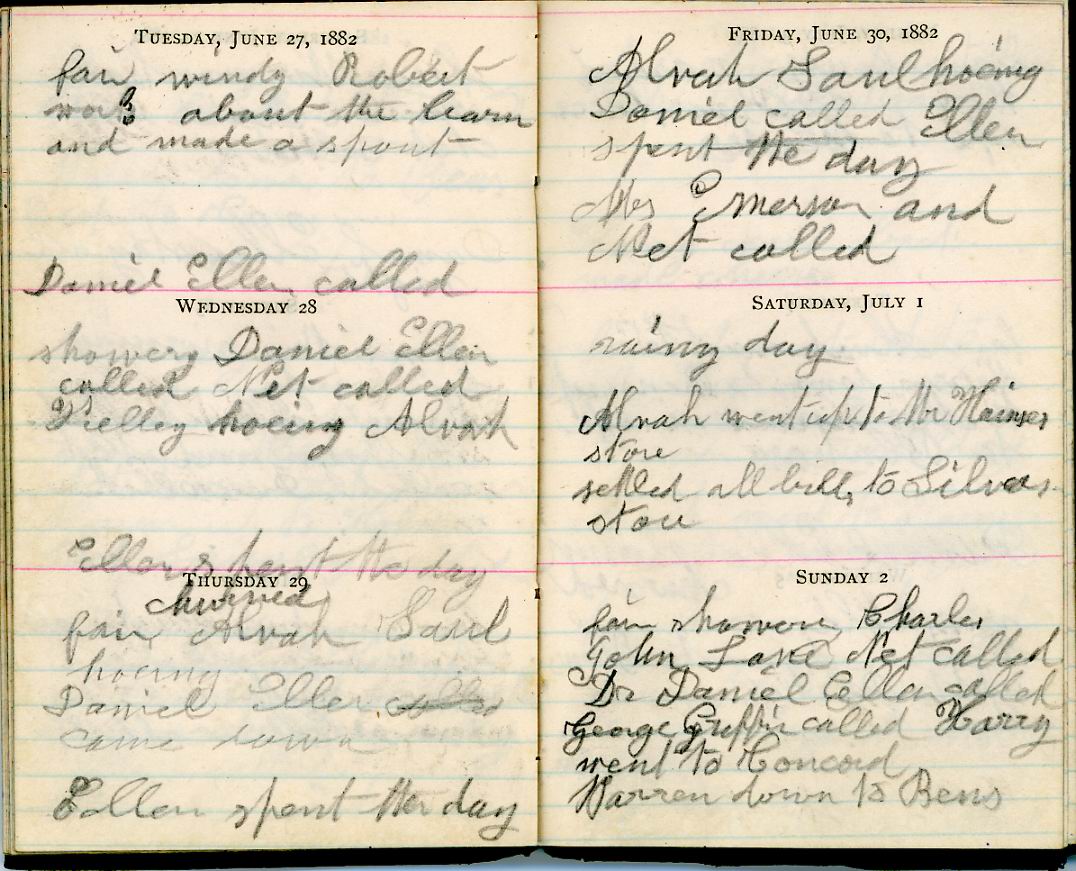 TUESDAY, JUNE 27, 1882
fair windy Robert
work about the barn
and made a spout
Daniel Ellen called
WEDNESDAY 28
showery Daniel Ellen
called Net called
hoeing Alvah
Ellen spent the day
THURSDAY 29
churned
fair Alvah Saul
hoeing
Daniel Ellen called
came down
Ellen spent the day
FRIDAY, JUNE 30, 1882
Alvah Saul hoeing
Daniel called Ellen
spent the day
Mrs Emerson and
Net called
SATURDAY, JULY 1
rainy day
Alvah went up to the
store
settled all bills to Silvers
store
SUNDAY 2
fair showers Charles
John Lake Net called
Dr Daniel Ellen called
George Griffin called Harry
went to Concord
Warren down to Bens